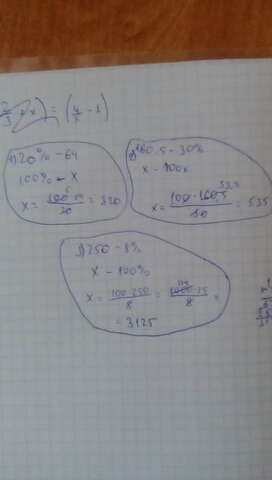 = (4/x - 1)
1) 20% - 64
100% - x
x = 100·64/20 = 320
2) 160,5 - 30%
x - 100%
x = 100·160,5/30 = 535
3) 250 - 8%
x - 100%
x = 100·250/8 = =
= 3125